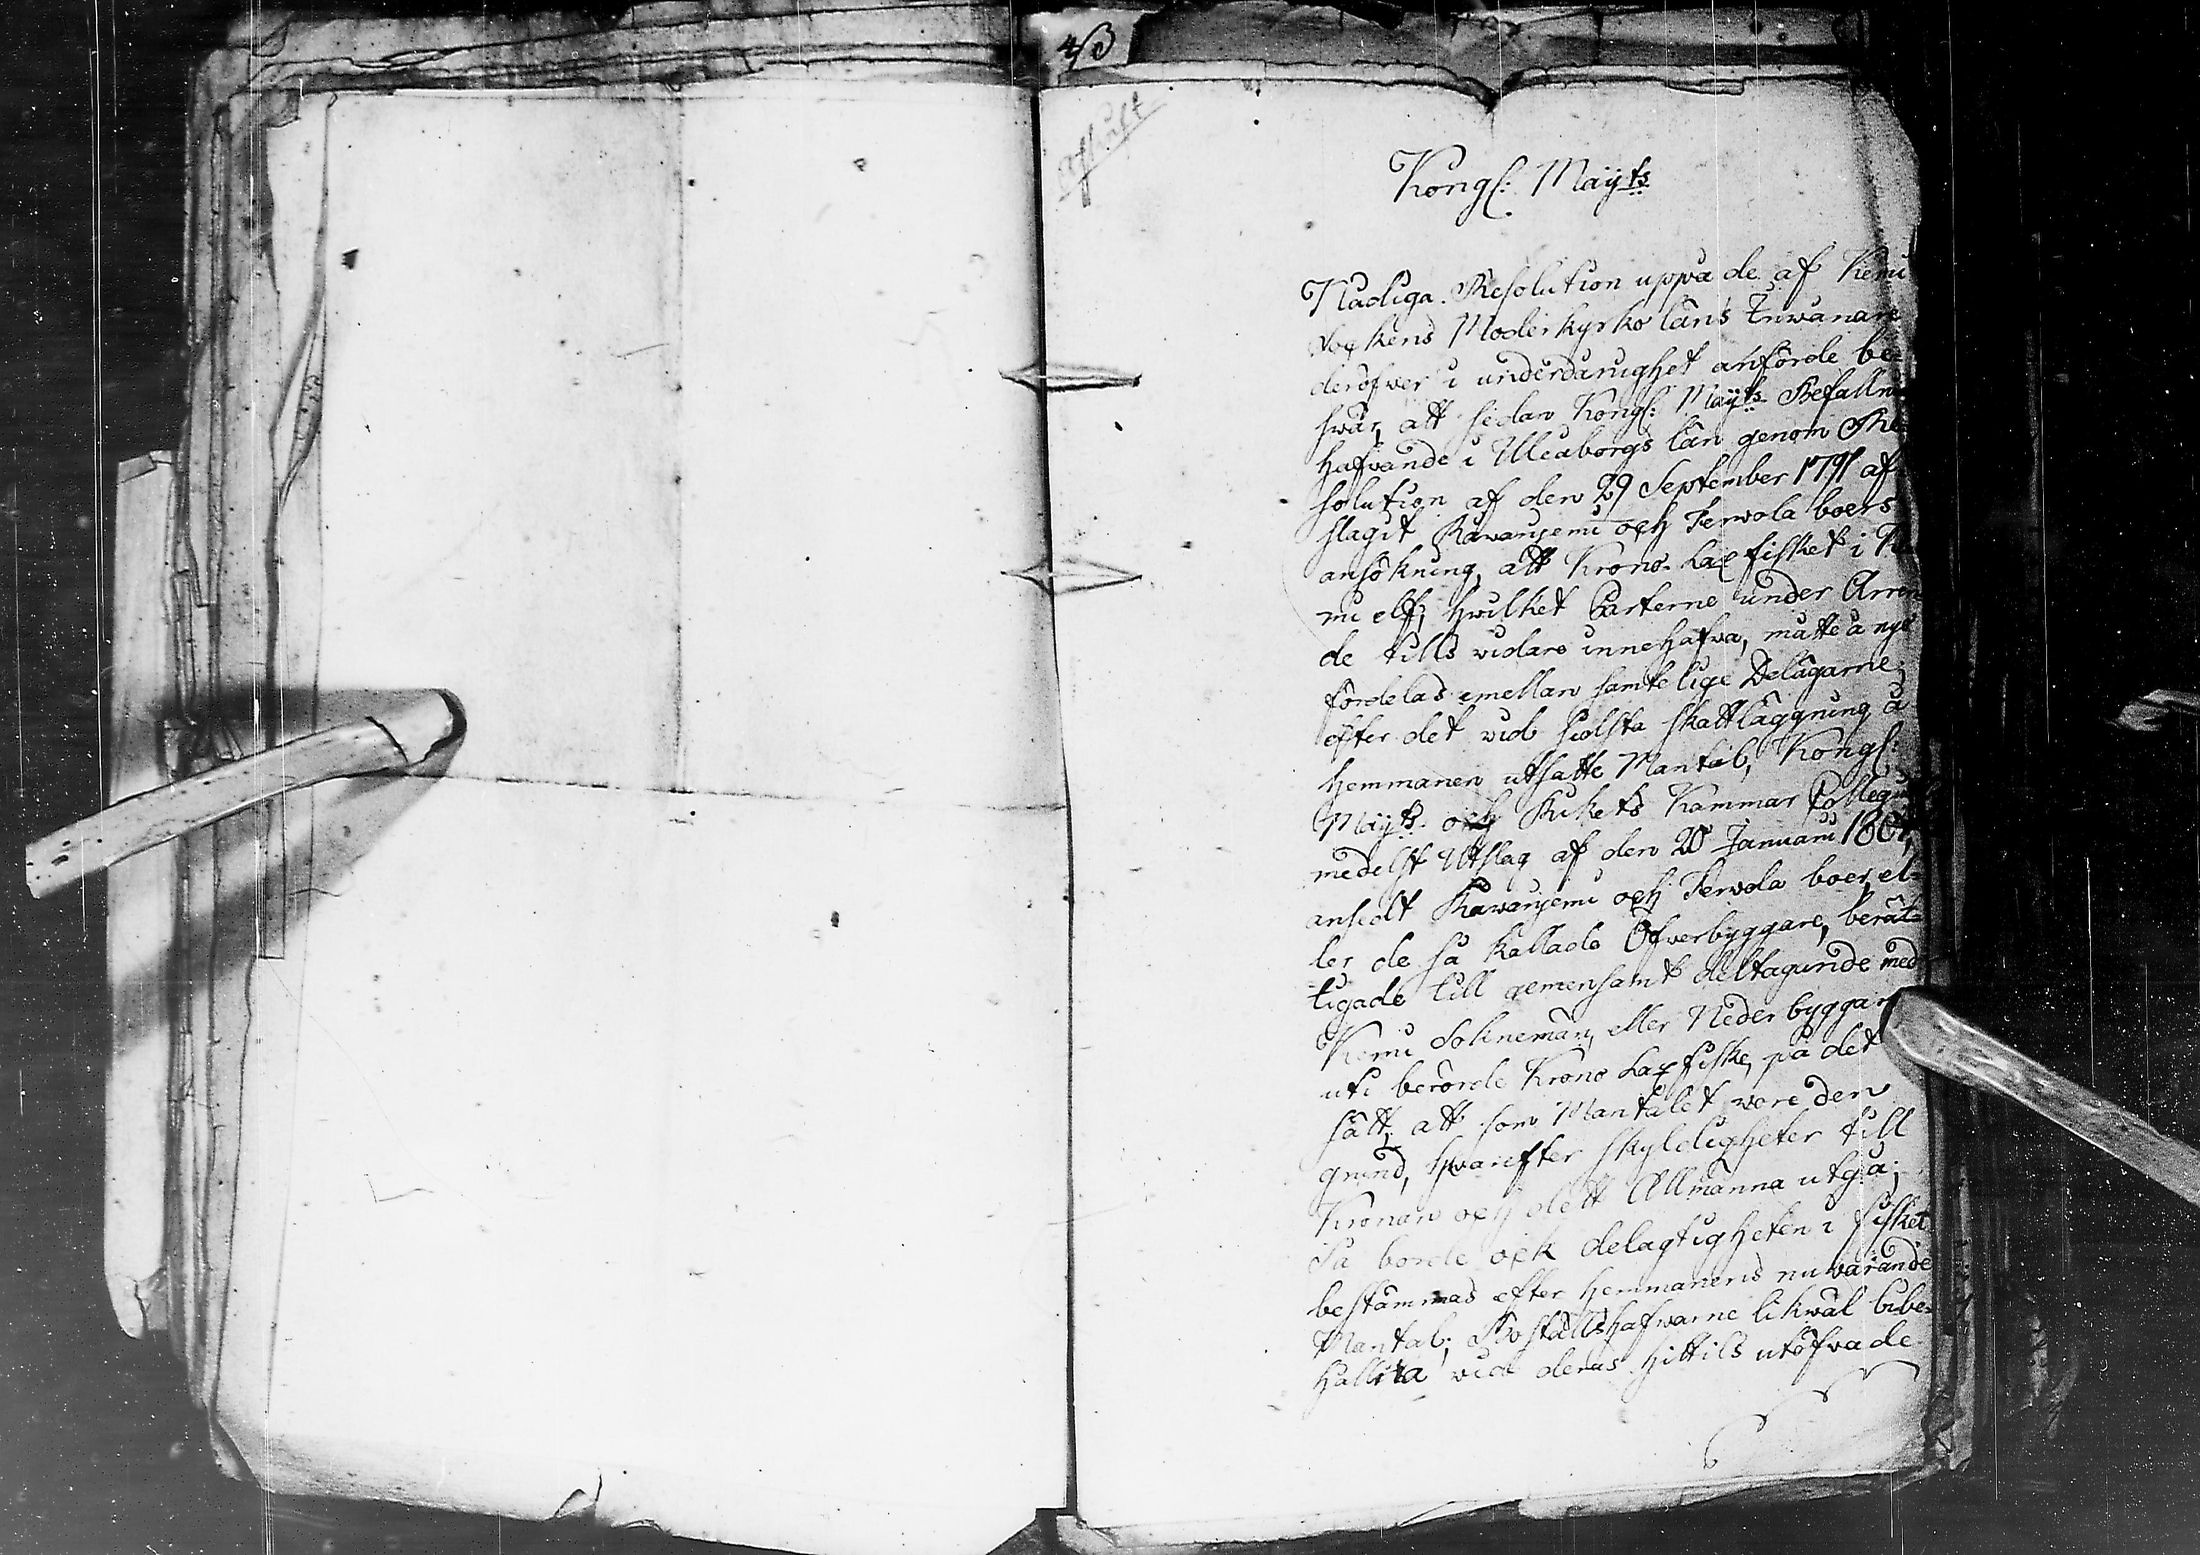 Afskrift
Kongl: Maÿts
Nådiga Resolution uppå de af Kemi
Sockens Moderkyrko läns Inwånare
deröfwer i underdånighet anförde be-
swär, att sedan Kongl: Maÿts Befallnings
hafvande i Uleaborgs län genom Re-
solution af den 29 September 1791 af-
slagit Rawanjemi och Terwola boers
ansökning, att Krono Lax fisket i Ke-
mi elf, hwilket Parterne under Arren-
de tills vidare innehafva, måtte å nytt
fördelas emellan samtelige Delägarne,
efter det vid sidsta skattläggning å
Hemmanen utsatte Mantal, Kongl:
Maÿts och Rikets Kammar Collegium
medelst Utslag af den 20 Januarii
ansedt Rawanjemi och Terwola boer, el-
ler de så kallade Öfverbyggare, berät-
tigade till gemensamt deltagande med
Kemi Soknemän, eller Nederbyggare
uti berörde Krono Lax fiske, på det
sätt, att som Mantalet vore den
grund, hvarefter skyldigheter till
Kronan och dett Allmänna utgå;
Så borde ock delagtigheten i fisket
bestämmas efter Hemmanens nuvarande
Mantal; Boställshafvarne likwäl bibe-
hållita vid deras hittils utöfvade